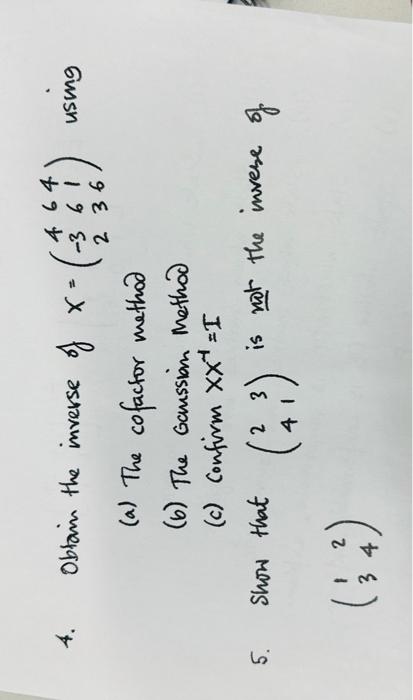 4. Obtain the inverse of X = ( 4 6 4
-3 6 1
2 3 6 ) using
(a) The cofactor method
(b) The Gaussian Method
(c) Confirm XX⁻¹ = I
5. Show that ( 2 3
4 1 ) is not the inverse of
( 1 2
3 4 )